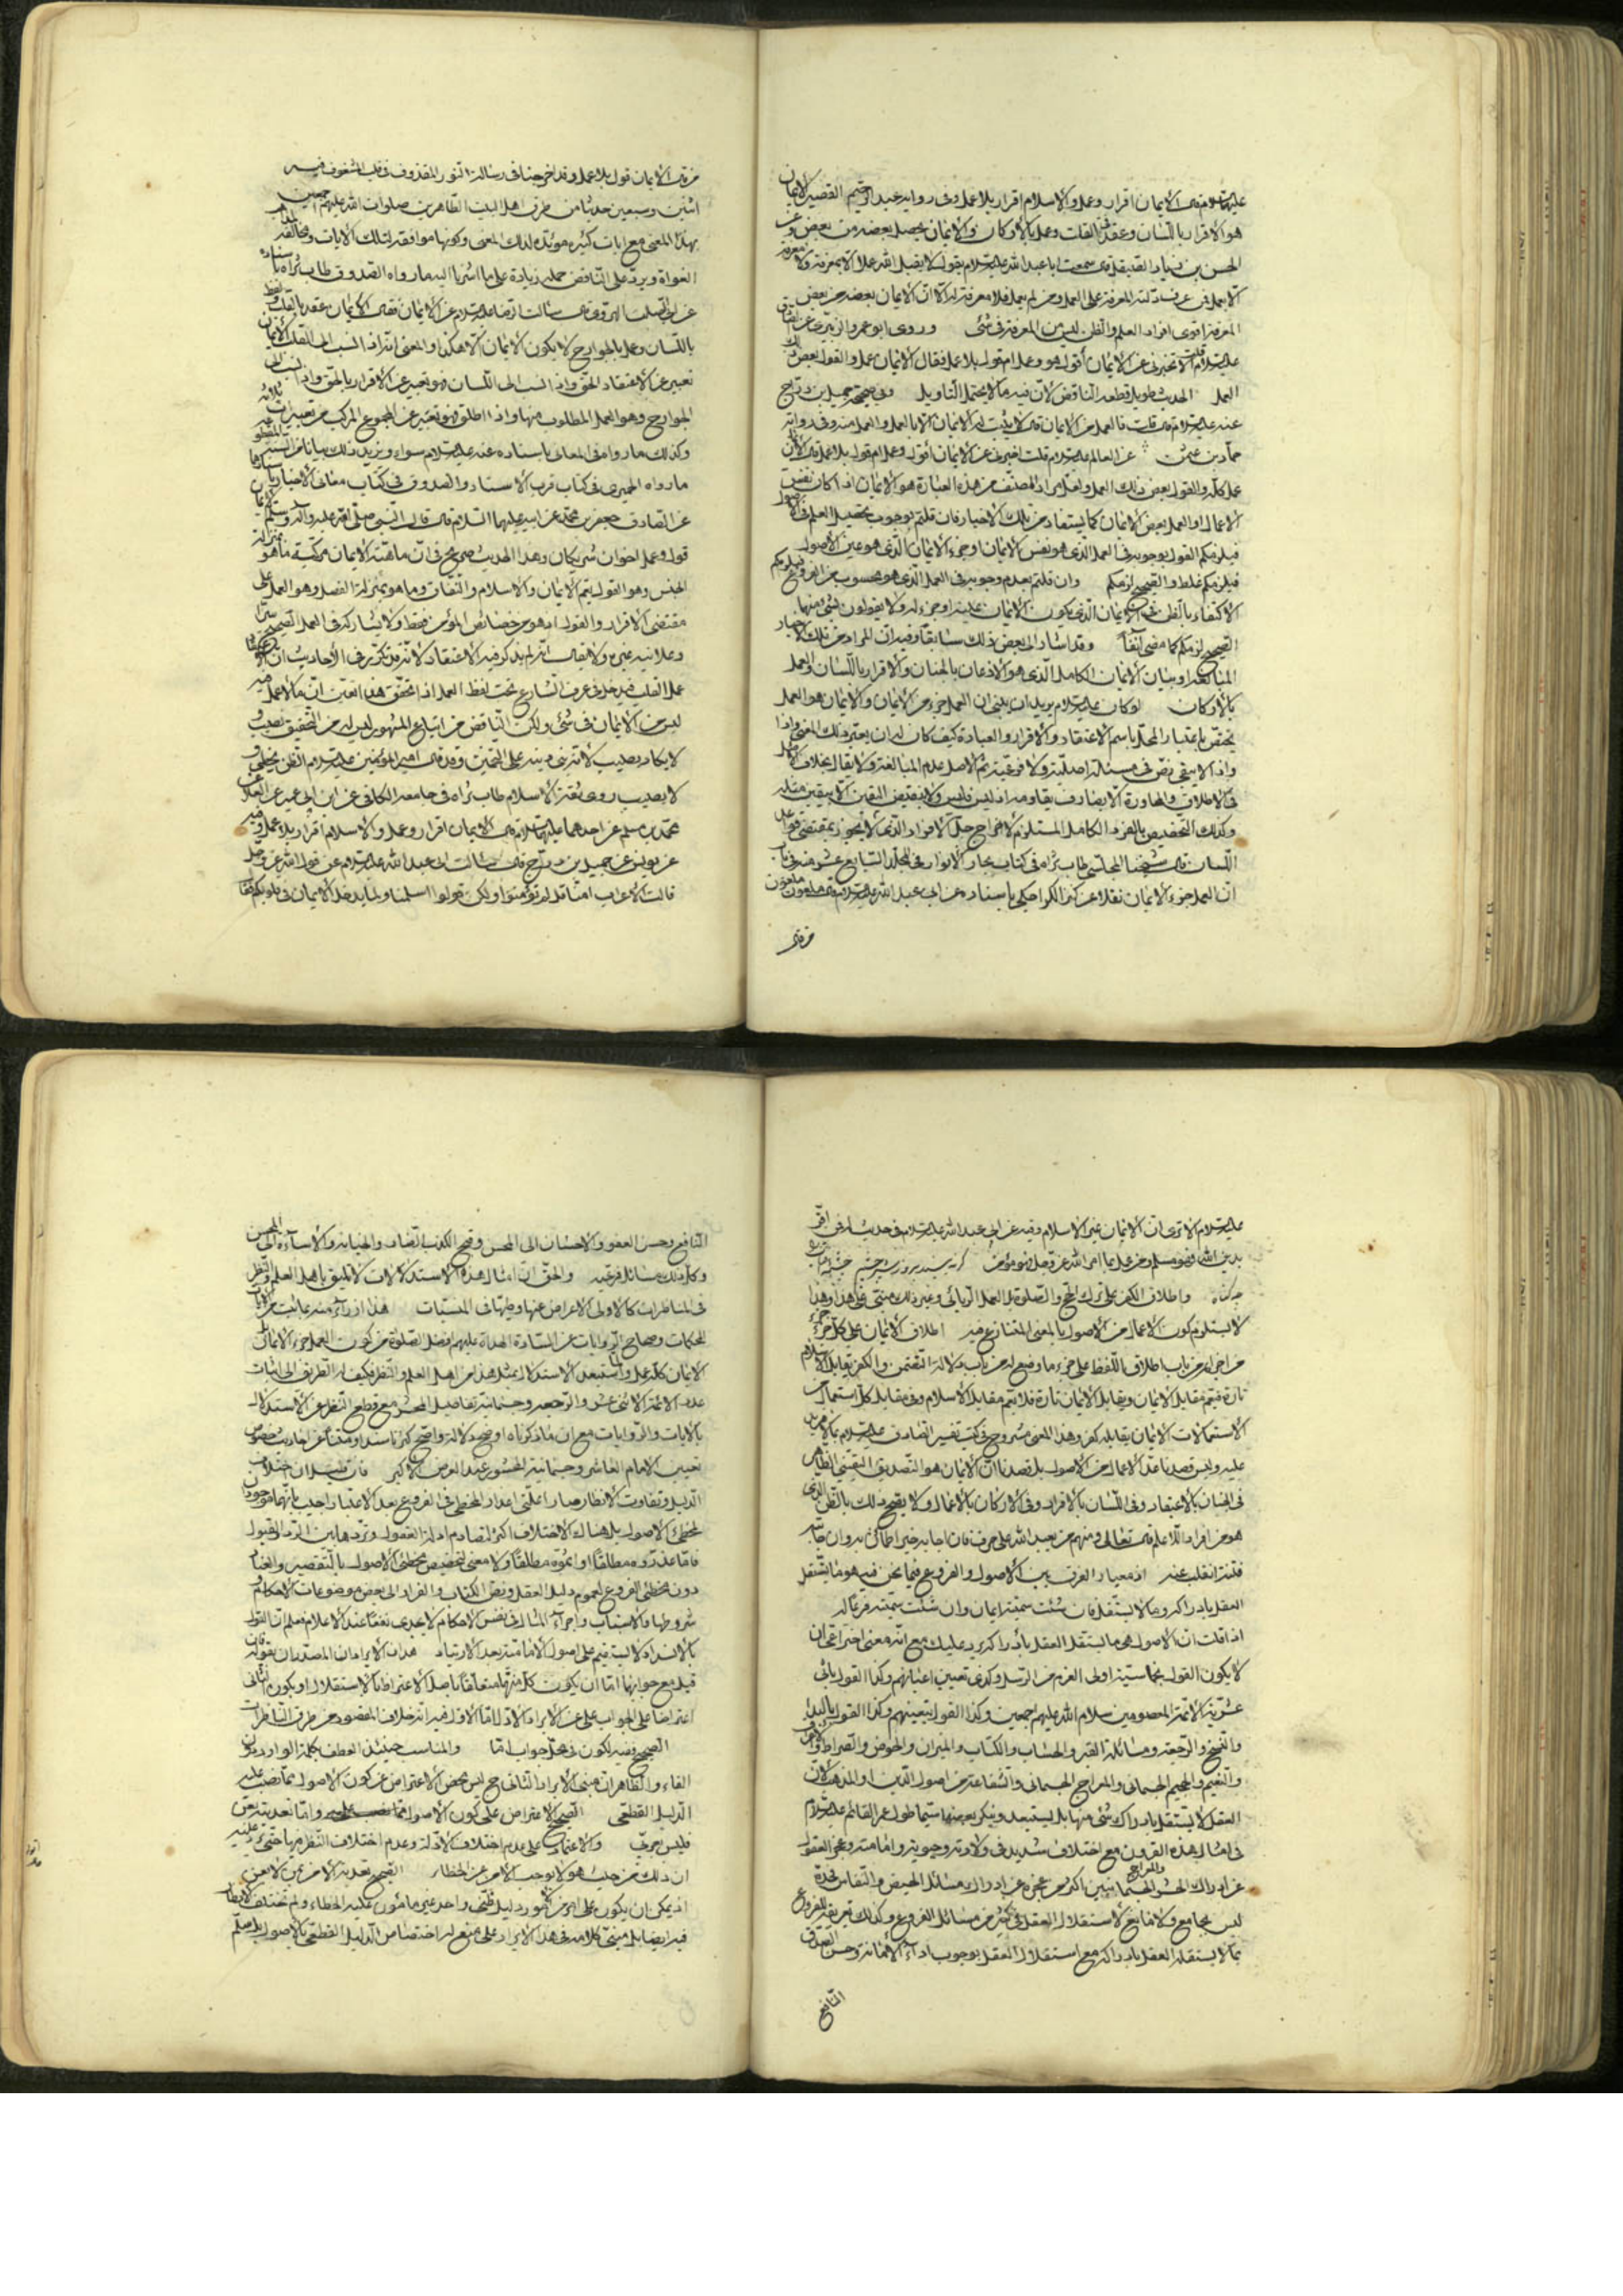 عليه السلام قال الايمان اقرار وعمل والاسلام اقرار بلا عمل وفى رواية عبد الرحيم القصير الايمان
هو الاقرار باللسان وعقد فى القلب وعمل بالاركان والايمان يحصل بعضه من بعض وعن
الحسن بن زياد الصيقل قال سمعت ابا عبد الله عليه السلام يقول لا يقبل الله عملا الا بمعرفة ولا معرفة
الا بعمل فمن عرف دلته المعرفة على العمل ومن لم يعمل فلا معرفة له الا ان الايمان بعضه من بعض
المعرفة اقوى افراد العلم والظن ليس من المعرفة فى شئ وروى ابو عمرو الزبيرى عن الصادق
عليه السلام قلت الا تخبرنى عن الايمان أقول هو وعمل ام قول بلا عمل فقال الايمان عمل والقول بعض ذلك
العمل الحديث طويل قطعه الناقض لان فيه ما لا يحتمل التأويل وفى صحيحة جميل بن دراج
عنه عليه السلام قال قلت فالعمل من الايمان قال لا يثبت له الايمان الا بالعمل والعمل منه وفى رواية
حماد بن عن العالم عليه السلام قلت اخبرنى عن الايمان أقول وعمل ام قول بلا عمل قال الايمان
عمل كله والقول بعض ذلك العمل ولعل مراد المصنف من هذه العبارة هو الايمان اذا كان نفس
الاعمال او العمل بعض الايمان كما يستفاد من تلك الاخبار فان قلتم بوجوب تحصيل العلم فى الاصول
فيلزمكم القول بوجوبه فى العمل الذى هو نفس الايمان او جزء الايمان الذى هو عين الاصول
فيلزمكم غلط والصحيح لزمكم وان قلتم بعدم وجوبه فى العمل الذى هو محسوب من الفروع فيلزمكم
الاكتفاء بالظن فى الايمان الذى يكون الايمان عليه او جزء له ولا يقولون بشئ منهما
الصحيح لزمكم كما مضى آنفا وقد اشار الى بعض ذلك سابقا وفيه ان المراد من تلك الاخبار
المبالغة او بيان الايمان الكامل الذى هو الاذعان بالجنان والاقرار باللسان والعمل
بالاركان لو كان عليه السلام يريد ان يبين ان العمل جزء من الايمان والايمان هو العمل
يختص باعتبار المحل باسم الاعتقاد والاقرار والعبادة كيف كان له ان يعبر ذلك المعنى واذا
واذ لا يبقى نص فى مسئلة اصلية ولا فرعية ثم الاصل عدم المبالغة ولا يقال بخلاف الاصل
فى الاطلاق والمحاورة الا بصارف يقاومه اذ ليس فليس ولا ينقض اليقين الا بيقين مثله
وكذلك التخصيص بالفرد الكامل المستلزم لاخراج جل الافراد الذى لا يجوز بمقتضى قواعد
اللسان قال شيخنا المجلسى طاب ثراه فى كتاب بحار الانوار فى المجلد السابع عشر منه فى باب
ان العمل جزء الايمان نقلا عن كنز الكراجكى باسناده عن ابى عبد الله عليه السلام قال ملعون ملعون
من قال
من قال الايمان قول بلا عمل وقد اخرجنا فى رسالة النور المقذوف فى قلب المشغوف فيه
اثنين وسبعين حديثا من طرق اهل البيت الطاهرين صلوات الله عليهم اجمعين
بهذا المعنى مع ايات كثيرة مويدة لذلك المعنى وكونها موافقة لتلك الايات ومخالفة لمذاهب
الغواة ويرد على الناقض حمله زيادة على ما اشرنا اليه ما رواه الصدوق طاب ثراه باسناده
عن ابى الصلت الهروى قال سالت الرضا عليه السلام عن الايمان فقال الايمان عقد بالقلب ولفظ
باللسان وعمل بالجوارح لا يكون الايمان الا هكذا والمعنى انه اذا نسب الى القلب الايمان
تعبير عن الاعتقاد الحق واذا نسب الى اللسان فهو تعبير عن الاقرار بالحق واذا نسب الى
الجوارح وهو العمل المطلوب منها واذا اطلق فهو تعبير عن المجموع المركب من تعبيرات ثلاثة
وكذلك ما رواه فى المعانى باسناده عنه عليه السلام سواء ويزيد ذلك بيانا
ما رواه الحميرى فى كتاب قرب الاسناد والصدوق فى كتاب معانى الاخبار باسنادهما
عن الصادق جعفر بن محمد عن ابيه عليهما السلام قال قال النبى صلى الله عليه وآله وسلم الايمان
قول وعمل اخوان شريكان وهذا الحديث صريح فى ان ماهية الايمان مركبة مما هو بمنزلة
الجنس وهو القول يعم الايمان والاسلام والنفاق ومما هو بمنزلة الفصل وهو العمل على
مقتضى الاقرار والقول اذ هو من خصائص المؤمن فقط ولا يشاركه فى العمل الصحيح سرا
وعلانية غيره ولا يقال انه لم يذكر فيه الاعتقاد لانه قد تكرر فى الأحاديث ان الاعتقاد
عمل القلب فيدخل فى عرف الشارع تحت لفظ العمل اذا تحقق هذا تعين ان ما لا عمل فيه
ليس من الايمان فى شئ ولكن الناقض من اتباع المشهور ليس له من التحقيق نصيب و
لا يكاد يصيب لانه بنى دينه على التخمين وقد قال امير المؤمنين عليه السلام الظن يخطى و
لا يصيب روى ثقة الاسلام طاب ثراه فى جامعه الكافى عن ابن ابى عمير عن العلاء عن
محمد بن مسلم عن احدهما عليهما السلام قال الايمان اقرار وعمل والاسلام اقرار بلا عمل وفيه
عن يونس عن جميل بن دراج قال سالت ابا عبد الله عليه السلام عن قول الله عز وجل
قالت الاعراب امنا قل لم تؤمنوا ولكن قولوا اسلمنا ولما يدخل الايمان فى قلوبكم فقال
عليه السلام الا ترى ان الايمان غير الاسلام وفيه عن ابى عبد الله عليه السلام فى حديث له فمن اقر
بدين الله فهو مسلم ومن عمل بما امر الله عز وجل فهو مؤمن گر نه بيند بروز شپره چشم چشمه آفتاب را
چه گناه واطلاق الكفر على ترك الحج والصلوة بل العمل الريائى وغير ذلك مبنى على هذا وهذا
لا يستلزم كون الاعمال من الاصول بالمعنى المتنازع فيه اطلاق الايمان على كل جزء
من اجزائه من باب اطلاق اللفظ على جزء ما وضع له من باب دلالة التضمن والكفر يقابل الاسلام
تارة فيتم مقابل الايمان ويقابل الايمان تارة فلا يتم مقابل الاسلام وفى مقابل كل استعمال من
الاستعمالات الايمان يقابله كفر وهذا المعنى مشروح فى كتب تفسير الصادق عليه السلام
عليه وليس قصدنا عد الاعمال من الاصول بل قصدنا ان الايمان هو التصديق اليقينى الظاهر
فى الجنان بالاعتقاد وفى اللسان بالاقرار وفى الاركان بالاعمال ولا يصح ذلك بالظن الذى
هو من افراد اللاعلم قال تعالى ومنهم من يعبد الله على حرف فان اصابه خير اطمأن به وان اصابته
فتنة انقلب عنه اذ معيار الفرق بين الاصول والفروع فيما نحن فيه هو ما يستقل
العقل بادراكه وما لا يستقل فان شئت سميته ايمان وان شئت سميته فرعا له
اذا قلت ان الاصول هى ما يستقل العقل بأدراكه يرد عليك مع انه معنى اختراعى ان
لا يكون القول بخماسية اولى العزم من الرسل وكذى تعيين اعيانهم وكذا القول باثنى
عشرية الائمة المعصومين سلام الله عليهم اجمعين وكذا القول بتعيينهم وكذا القول بالبداء
والنسخ والرجعة ومسائلة القبر والحساب والكتاب والميزان والحوض والصراط والاعراف
والنعيم والجحيم الجسمانى والمعراج الجسمانى والشفاعة من اصول الدين او المذهب لان
العقل لا يستقل بادراك شئ منها بل يستبعد وينكر بعضها سيما طول عمر القائم عليه السلام
فى امثال هذه القرون مع اختلاف شديد فى ولادته ووجوبه وامامته وعجز العقول
عن ادراك الحشر الجسمانيين اكثر من عجزه عن ادراك مسائل الحيض والنفاس فحده
ليس بجامع ولا مانع لاستقلال العقل فى كثير من مسائل الفروع وكذلك تعريفه للفروع
بما لا يستقل العقل بادراكه مع استقلال العقل بوجوب اداء الامانة وحسن الصدق
النافع
النافع وحسن العفو والاحسان الى المحسن وقبح الكذب الضار والخيانة والاسآءة الى المحسن
وكل ذلك مسائل فرعية والحق ان امثال هذه الاستدلالات لا تليق باهل العلم والنظر
فى المناظرات كالاولى الاعراض عنها وطيها فى المنسيات هذا ازراء منه بما ثبت من الآيات
المحكمات وصحاح الروايات عن السادة الهداة عليهم افضل الصلوة من كون العمل جزء الايمان بل
الايمان كله عمل واذا استبعد الاستدلال بمثل هذا من اهل العلم والنظر فكيف له الطريق الى اثبات
عدد الائمة الاثنى عشر والرجعة وجسمانية تفاصيل المحشر مع قطع النظر عن الاستدلال
بالايات والروايات مع ان ما ذكرناه اوضح دلالة واصح كثر ناسندا ومتنا عن احاديث خصوص
تعيين الامام العاشر وجسمانية الحشور عند العرض الاكبر فان قيل ان اختلاف
الدليل وتفاوت الانظار صار اعلتى اعذار المخطى فى الفروع بعد الاعتبار اجيب بانهما موجودان
لمخطئ الاصول بل هناك الاختلاف اكثر لتصادم ادلة العقول وترددها بين الرد والقبول
فاما عذروه مطلقا او اثموه مطلقا ولا معنى لتخصيص مخطئ الاصول بالتقصير والعناد
دون مخطئ الفروع لعموم دليل العقل ونص الكتاب والفرار الى بعض موضوعات الاحكام
شروطها والاسباب واجراء المثال فى نفس الاحكام لا يجدى نفعا عند الاعلام فعلم ان القول
بالانسداد لا يستقيم على اصول الامامية بعد الارتياد هذان الايرادان المصدران بقوله فان
قيل مع جوابهما اما ان يكون كل منهما متعلقا باصل الاعتراض بالاستقلال او يكون الثانى
اعتراضا على الجواب على عن الايراد الاول اما الاول ففيه انه خلاف المقصود من طرق الناظرات
الصحيح وفيه لكون فى محل جواب اما والمناسب حينئذ العطف بكلمة الواو دون
الفاء والظاهر ان مبنى الايراد الثانى ح ليس محض الاعتراض عن كون الاصول مما نصب عليه
الدليل القطعى الصحيح الاعتراض على كون الاصول مما وامّا تعديته بعن
فليس بعربى والاعتماد على عدم اختلاف الادلة وعدم اختلاف النظر فيها حتى يرد عليه
ان ذلك من حيث هو لا يوجب الامن عن الخطاء الصحيح تعدية الامن بمن لا بعن
اذ يمكن ان يكون على امر من الأمور دليل ظنى واحد غير مأمون عليه الخطاء ولم تختلف الانظار
فيه ايضا بل مبنى كلامه فى هذا الايراد على منع له اختصاص الدليل القطعى بالاصول بل مسلم